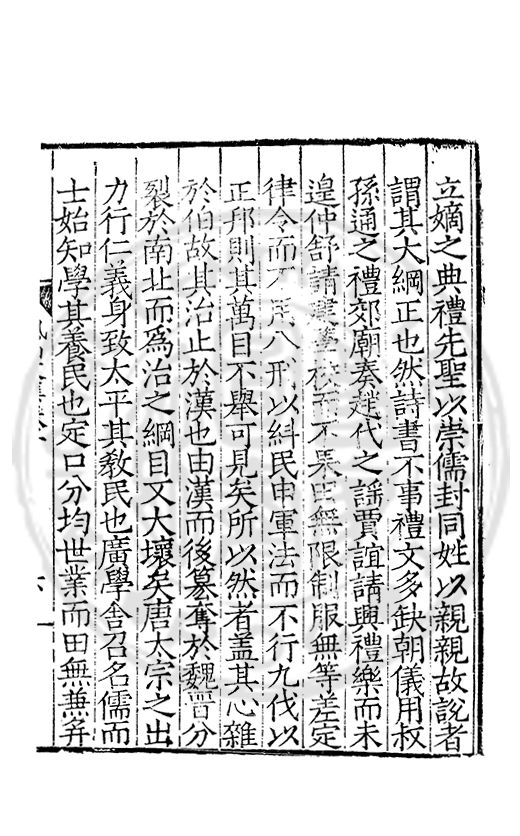 立嫡之典禮先聖以崇儒封同姓以親親故說者
謂其大綱正也然詩書不事禮文多缺朝儀用叔
孫通之禮郊廟奏趙代之謡賈誼請興禮樂而未
遑仲舒請建學校而不果田無限制服無等差定
律令而不用八刑以糾民申軍法而不行九伐以
正邦則其萬目不舉可見矣所以然者盖其心雜
於伯故其治止於漢也由漢而後篡奪於魏晋分
裂於南北而為治之綱目又大壞矣唐太宗之出
力行仁義身致太平其教民也廣學舎召名儒而
士始知學其養民也定口分均世業而田無兼并